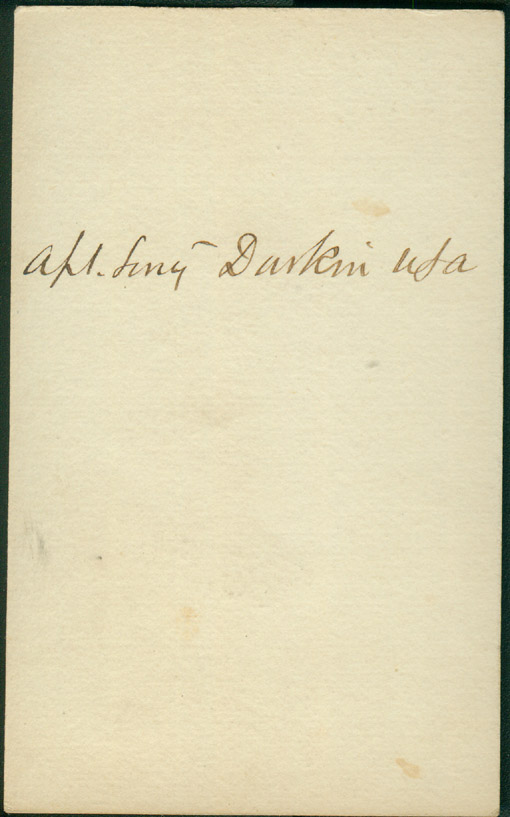 Asst. Surg Durkin USA